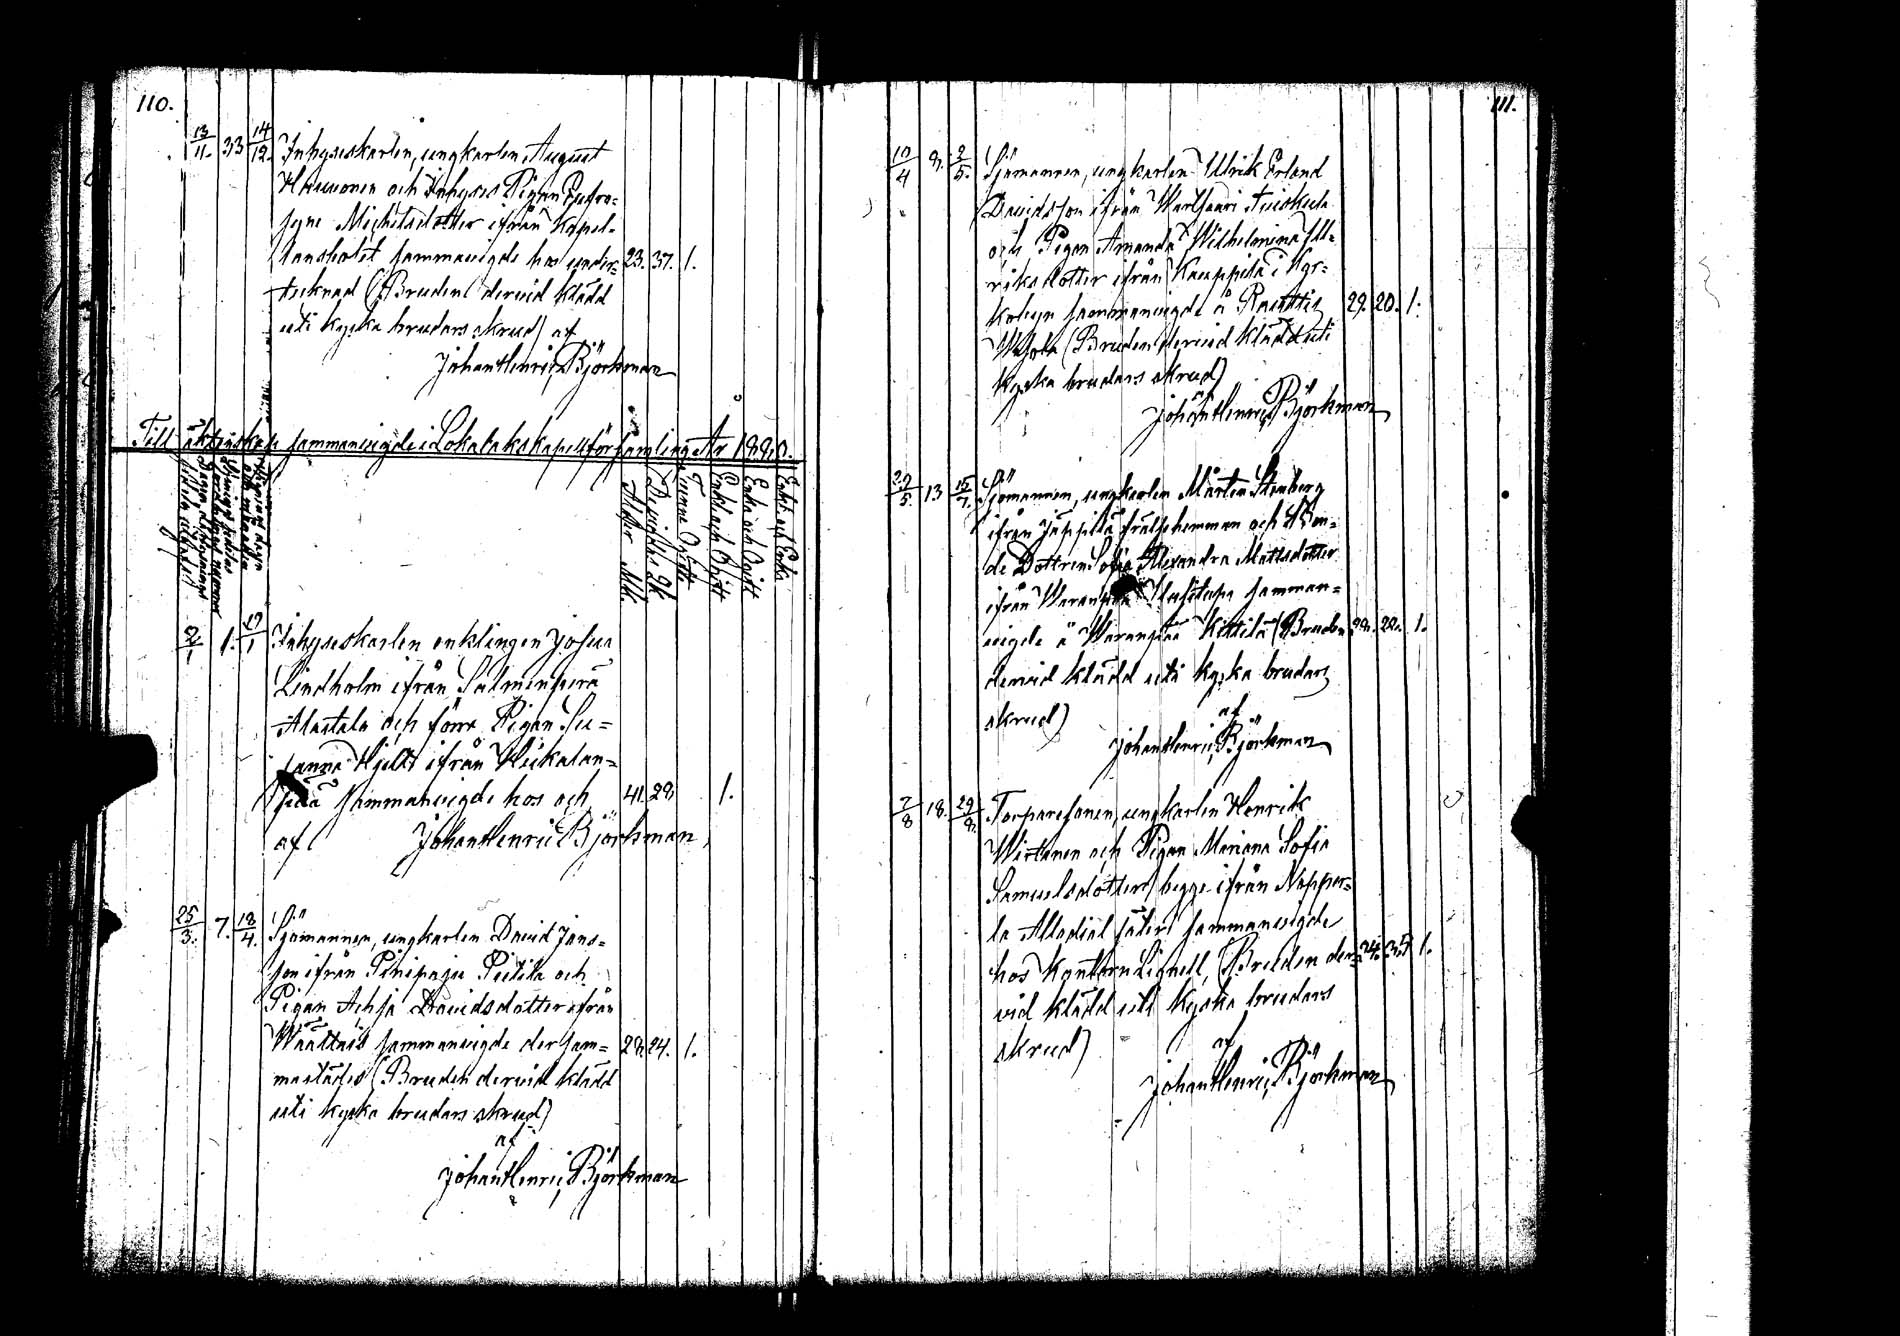 110.
13/11. 33 14/12. Inhyseskarlen, ungkarlen August
och Inhyses Pigan Eufro=
syne Michelsdotter ifrån Kapel-
lansbolet sammanvigde hos under= 23. 37. 1.
tecknad (Bruden dervid klädd
uti kyska brudars skrud) af
Johan Henric Björkman
Till äktenskap sammanvigde i Lokalaks kapellförsamling År 1880.
Ålder
Mk.
Qk.
Enkl. och Enka
2/1 1. 19/1 Inhyseskarlen enklingen Josua
Lindholm ifrån Salmenperä
Alastalo och förre Pigan Su=
sanna Hjelt ifrån
sammanvigde hos och 41. 28. 1.
af Johan Henric Björkman
25/3. 7. 18/4. Sjömannen, ungkarlen David Jans=
son ifrån Pinipaju och
Pigan Davidsdotter ifrån
Wäättäis sammanvigde dersam= 28. 24. 1.
mastädes (Bruden dervid klädd
uti kyska brudars skrud)
af
Johan Henric Björkman
111.
10/4 8. 2/5. Sjömannen, ungkarlen Ulrik Erland
Davidsson ifrån Wartsaari
och Pigan Amanda Wilhelmina Ul=
riksdotter ifrån Kauppila i Kyr=
kobyn sammanvigde å Rauttis 29. 20. 1.
(Bruden dervid klädd uti
kyska brudars skrud)
Johan Henric Björkman
5. 13 15/7. Sjömannen, ungkarlen Mårten Stenberg
ifrån Jäppilä frälsehemman och Bon=
de Dottren Sofia Alexandra Mattsdotter
ifrån samman=
vigde å Waranpää Kittilä (Bruden 22. 1.
dervid klädd uti kyska brudars
skrud)
af
Johan Henric Björkman
7/8 18. 29/8. Torparesonen, ungkarlen Henrik
Wirtanen och Pigan Mariana Sofia
Samuelsdotter, begge ifrån Nopper=
la Allodial säteri sammanvigde
hos Kantorn Lignell, (Bruden der= 24. 35. 1.
vid klädd uti kyska brudars
skrud)
af
Johan Henric Björkman